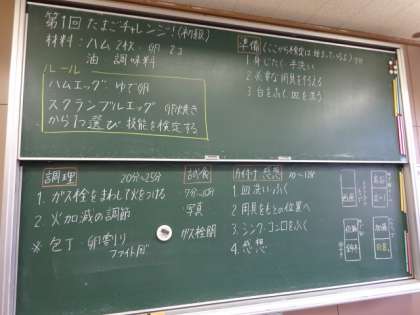 第1回 たまごチャレンジ!(初級)
材料:ハム2枚 卵 2コ
油 調味料
ルール
ハムエッグ ゆで卵
スクランブルエッグ 卵焼き
から1つ選び 技能を検定する
準備(ここから検定は始まっているよ)
1.身じたく 手洗い
2.必要な用具をそろえる
3.台をふく 皿を洗う
調理 20分~25分
1.ガス栓をまわして火をつける
2.火加減の調節
※ 包丁 卵割り
ファイト
試食
7分~10分
写真
ガス栓閉
片付け 感想 10~15分
1.皿洗い ふく
2.用具をもとの位置へ
3.シンク コンロをふく
4.感想